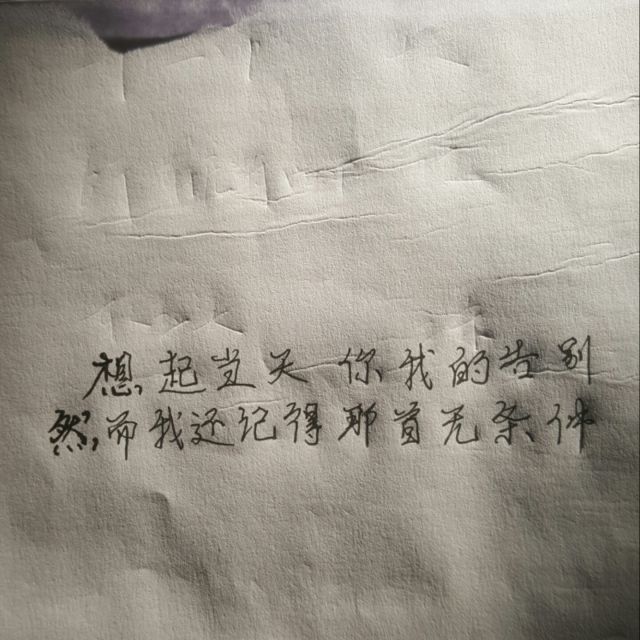 想起当天 你我的告别
然而我还记得那首无条件